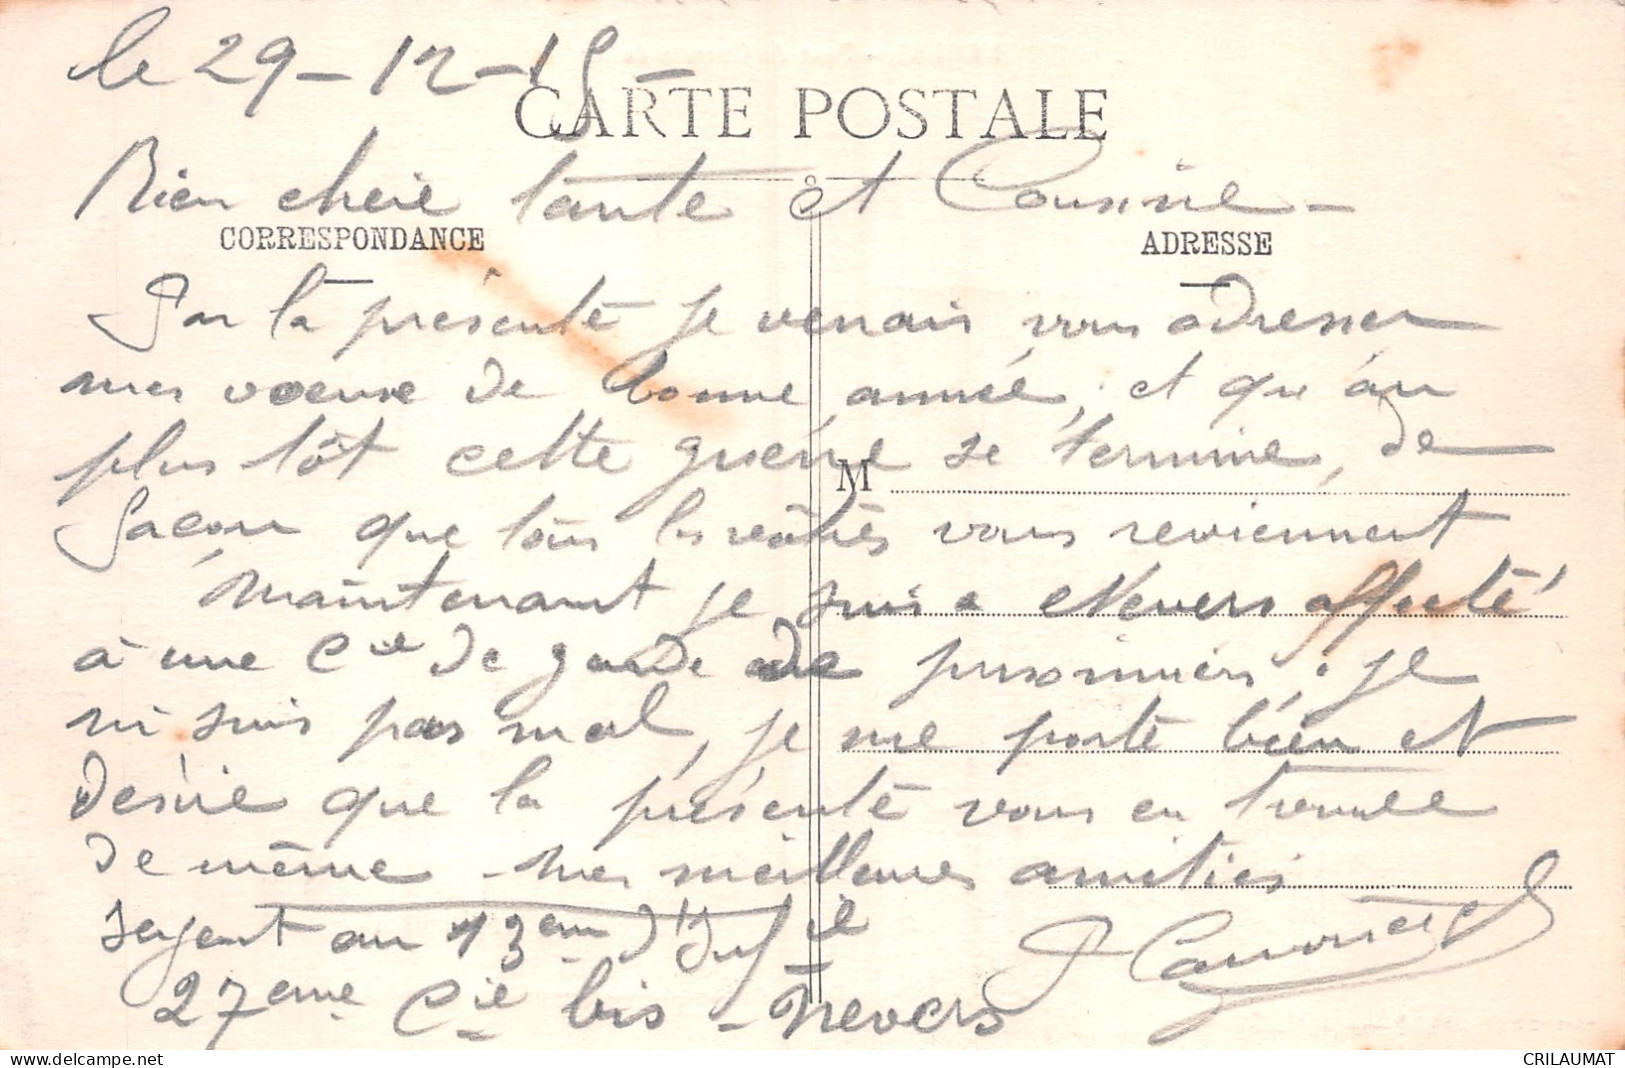 le 29-12-15-
CARTE POSTALE
Bien chère tante et Cousine-
CORRESPONDANCE
ADRESSE
Par la présente je venais vous adresser
mes voeux de bonne année, et qu'au
plus tôt cette guerre se termine, de
M
façon que tous les vôtres vous reviennent
Maintenant je suis a Nevers affecté
à une Cie de garde de prisonniers. je
ni suis pas mal, je me porte bien et
désire que la présente vous en trouve
de même - Mes meilleures amitiés
sergent au 13eme d'Infie
27eme Cie bis - Nevers
CRILAUMAT